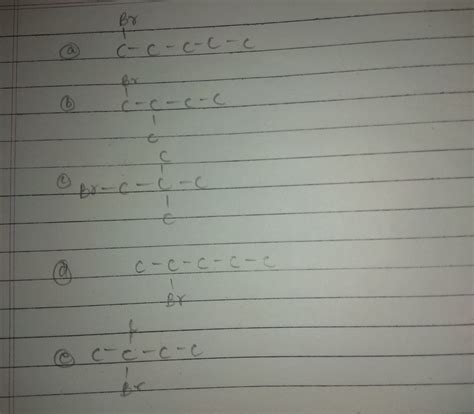 Br
(a) C - C - C - C - C
Br
(b) C - C - C - C
C
C
(c) Br - C - C - C
C
(d) C - C - C - C - C
Br
(e) C - C - C - C
Br